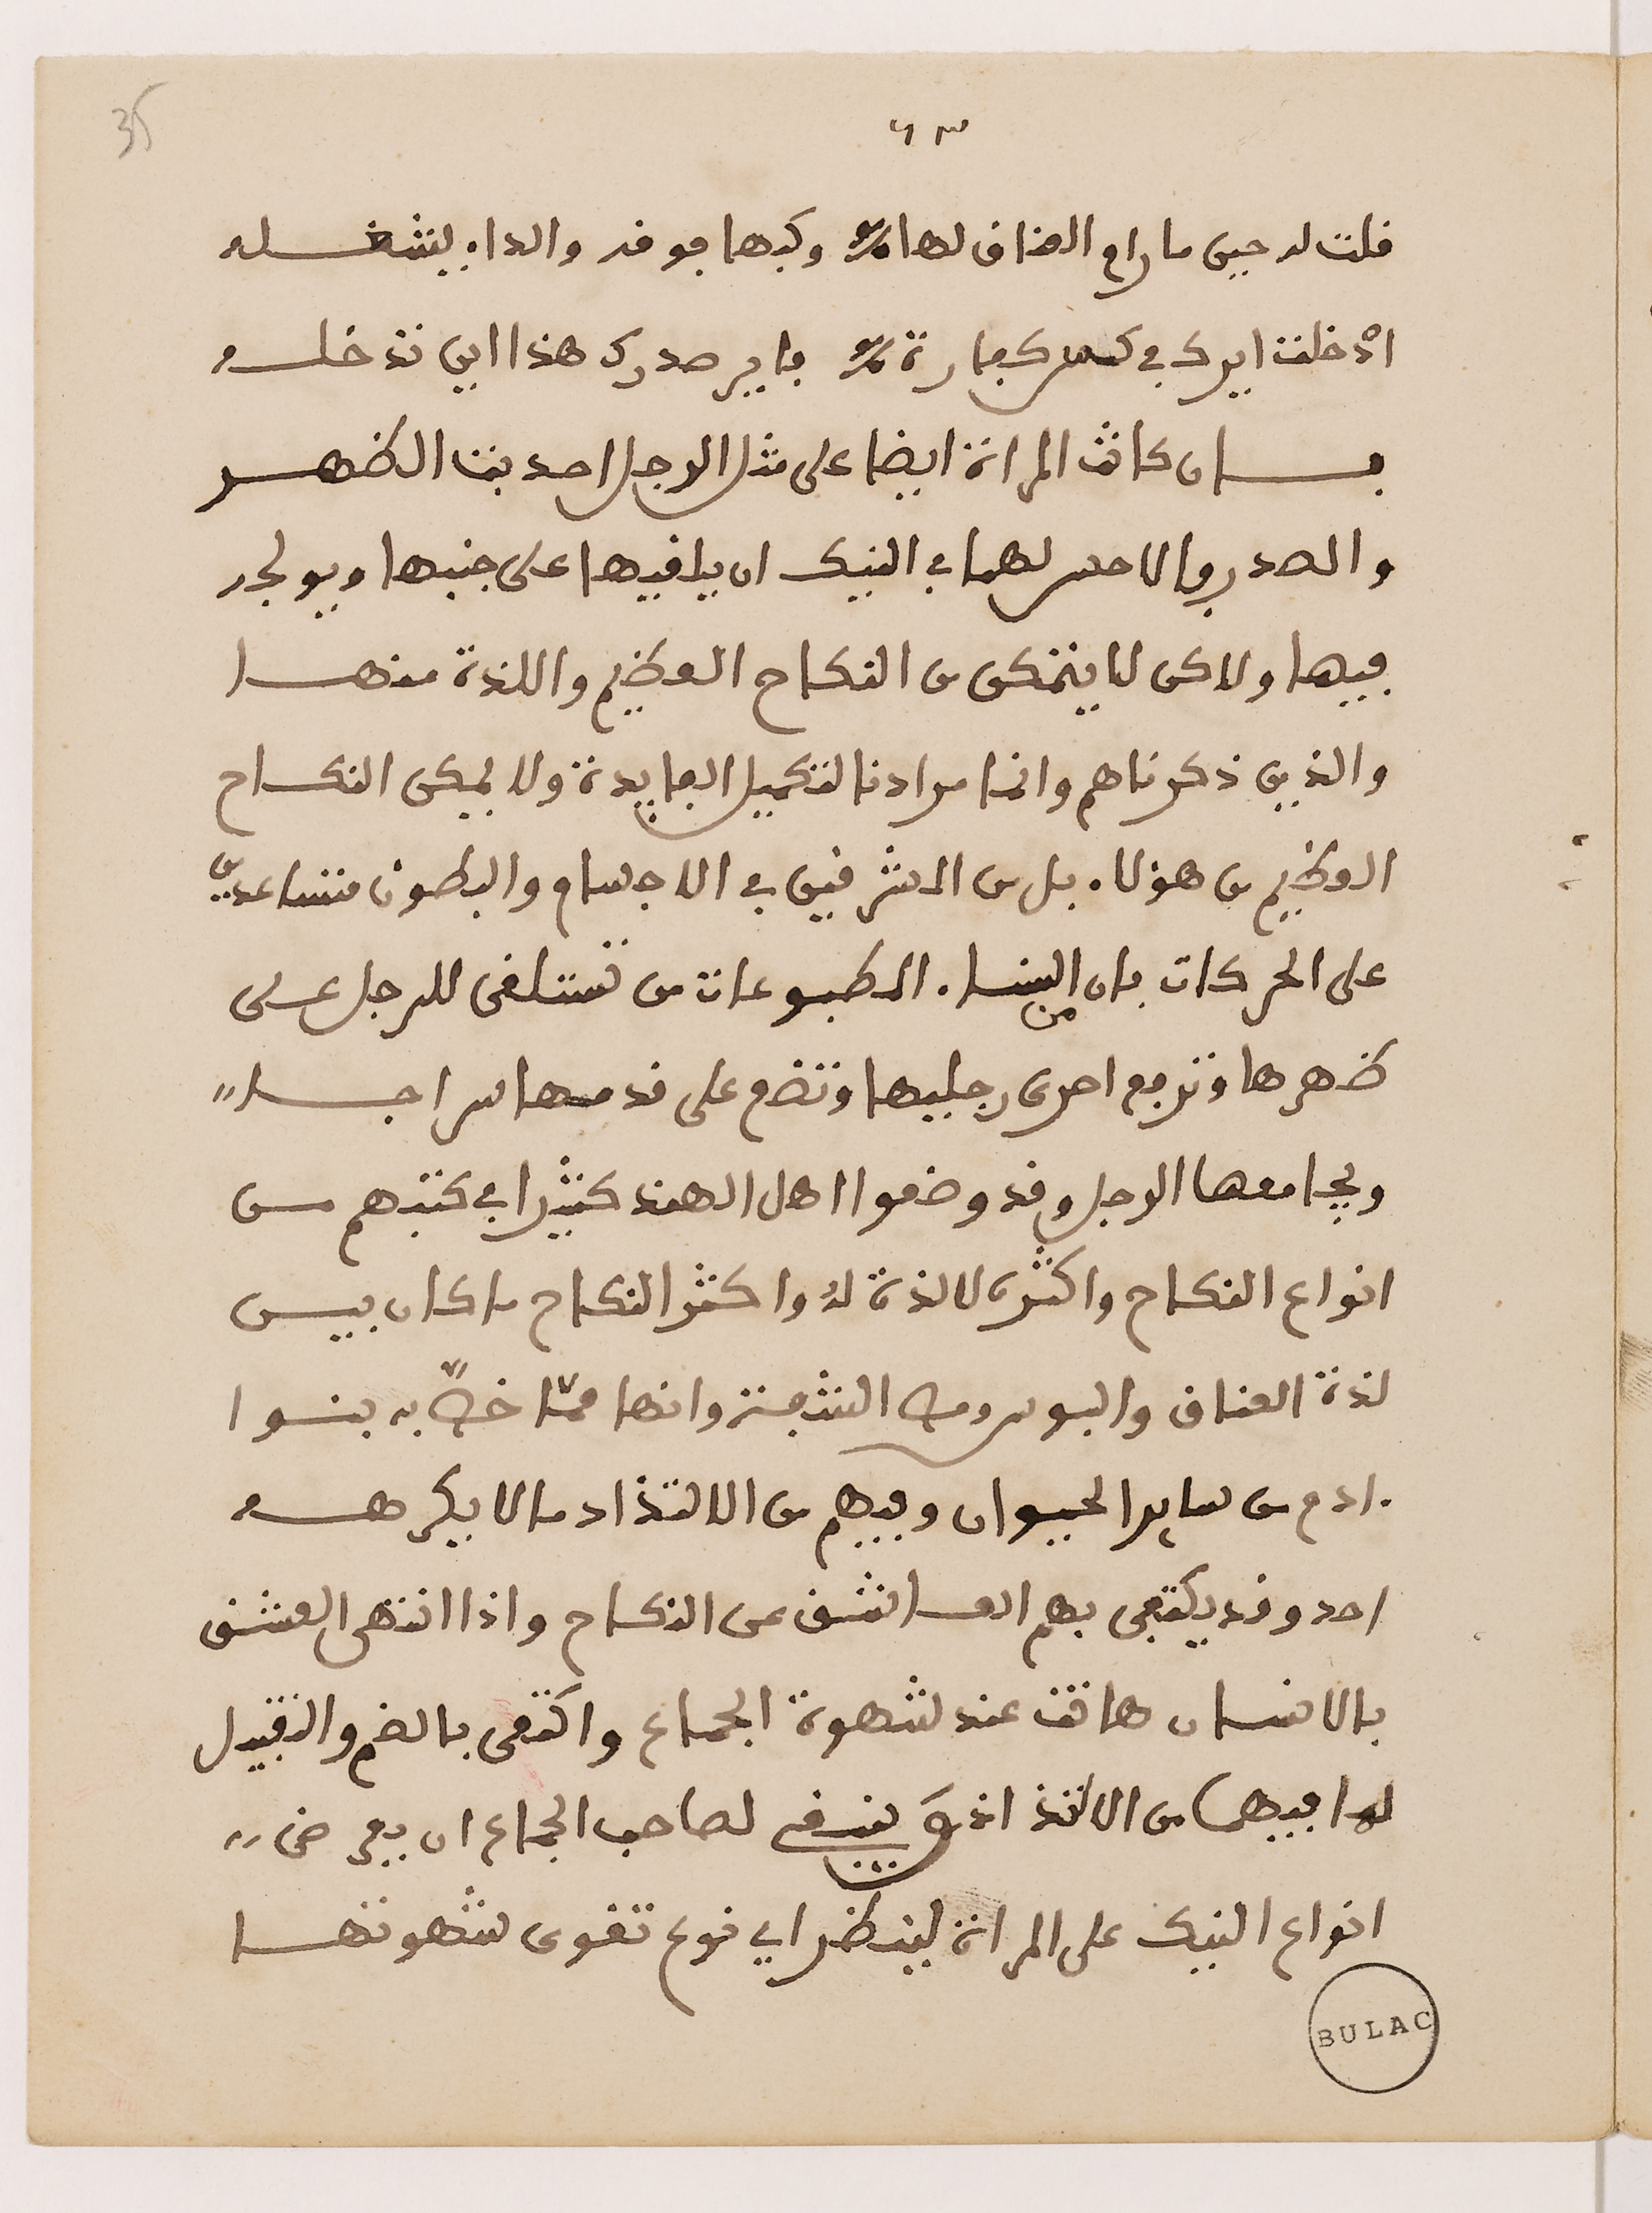 35
٦٣
قلت له حين رام العناق لها وكبها فوقه والداء يشغله
ادخلت ايرك في كس كفارة فاير صدرك هذا اين تدخله
فان كانت المراة ايضا على مثل الرجل احدبت الظهر
والصدر فالاحسن لهما في النيك ان يلاقيها على جنبها ويولجه
فيها ولاكن لا يتمكن من النكاح العظيم واللذة منها
والذين ذكرناهم وانما مرادنا لتكميل الفايدة ولا يمكن النكاح
العظيم من هولاء بل من المشرفين في الاجسام والبطون متساعدين
على الحركات فان من النساء المطبوعات من تستلقى للرجل على
ظهرها وترفع احدى رجليها وتضع على قدمها سراجا
ويجامعها الرجل وقد وضعوا اهل الهند كثيرا في كتبهم من
انواع النكاح واكثره لا لذة له واكثر النكاح ما كان بين
لذة العناق والبوس ومص الشفة وانها مما خص به بنوا
ءادم من ساير الحيوان وفيهم من الالتذاد ما لا يكرهه
احد وقد يكتفى بهم العاشق عن النكاح واذا انتهى العشق
بالانسان هانت عنده شهوة الجماع واكتفى بالضم والتقبيل
لما فيهما من الالتذاذ وينبغي لصاحب الجماع ان يعرض
انواع النيك على المراة لينظر اي نوع تقوى شهوتها
BULAC